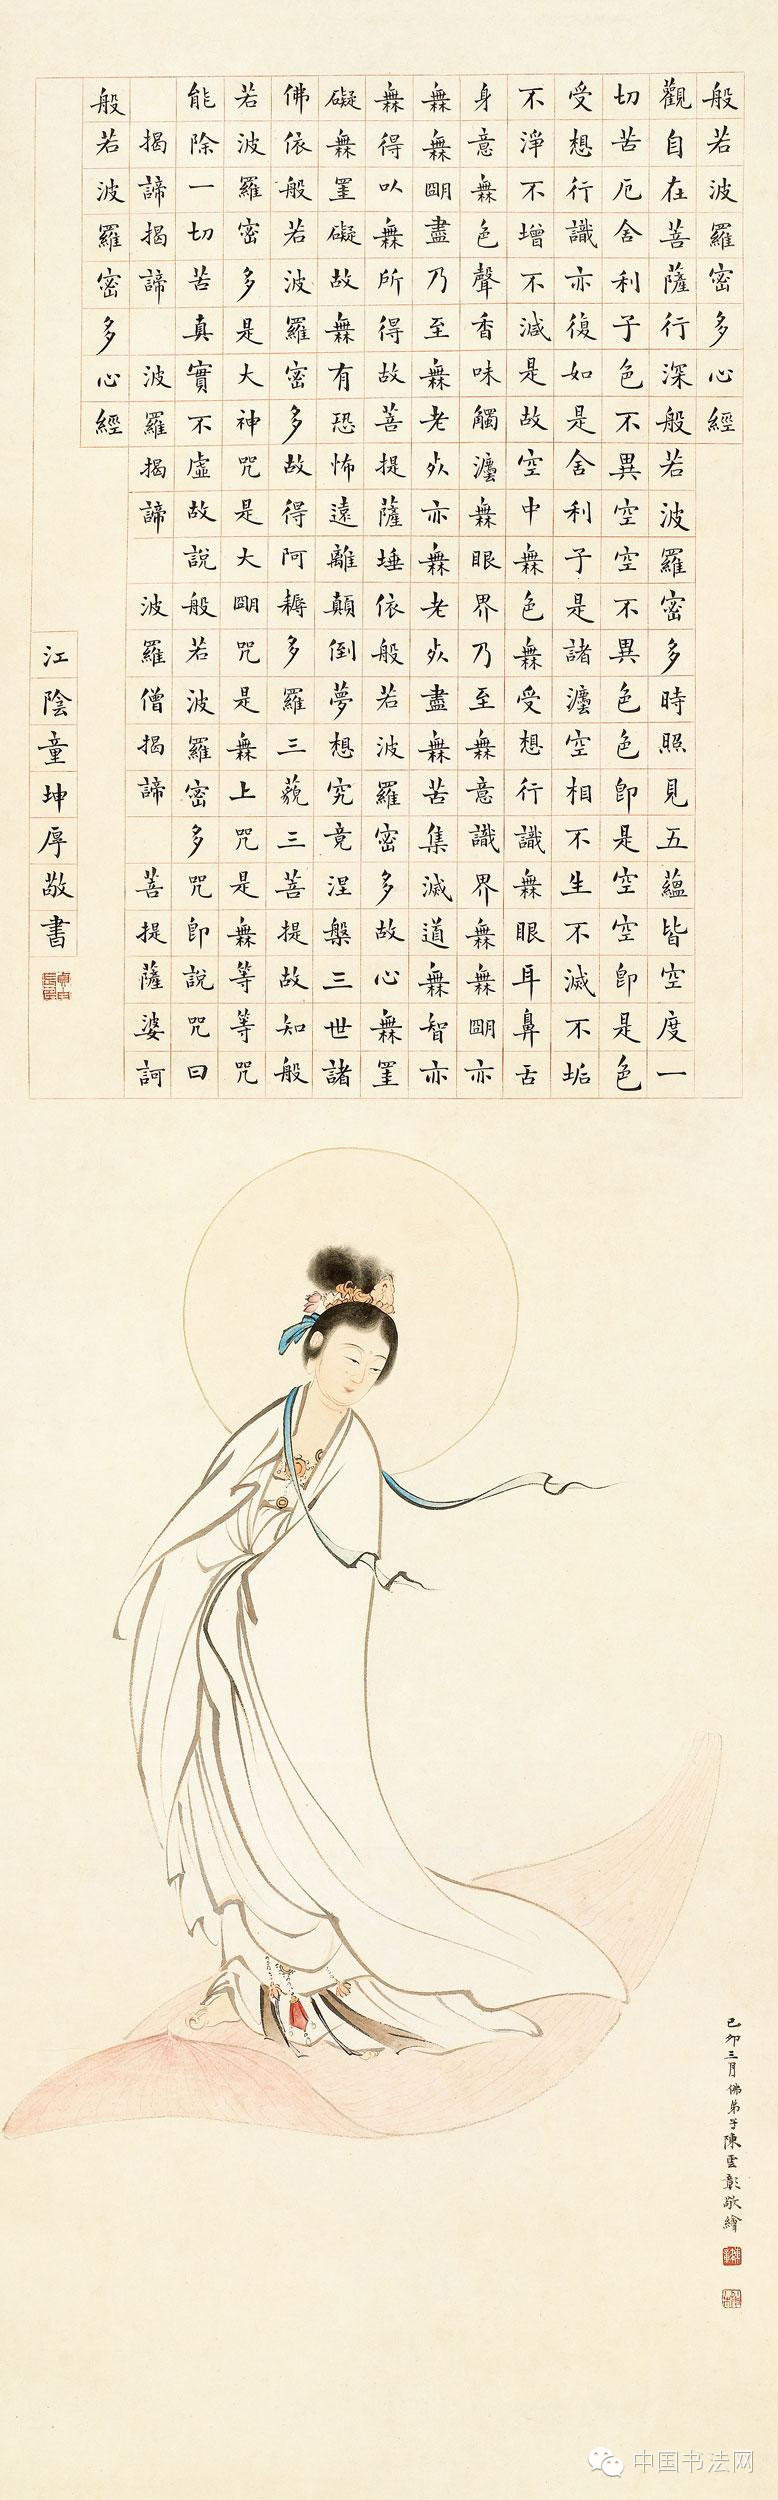 般若波羅密多心經
觀自在菩薩行深般若波羅密多時照見五蘊皆空度一
切苦厄舍利子色不異空空不異色色即是空空即是色
受想行識亦復如是舍利子是諸灋空相不生不滅不垢
不淨不增不減是故空中無色無受想行識無眼耳鼻舌
身意無色聲香味觸灋無眼界乃至無意識界無無朙亦
無無朙盡乃至無老死亦無老死盡無苦集滅道無智亦
無得以無所得故菩提薩埵依般若波羅密多故心無罣
礙無罣礙故無有恐怖遠離顛倒夢想究竟涅槃三世諸
佛依般若波羅密多故得阿耨多羅三藐三菩提故知般
若波羅密多是大神咒是大朙咒是無上咒是無等等咒
能除一切苦真實不虛故說般若波羅密多咒即說咒曰
揭諦揭諦 波羅揭諦 波羅僧揭諦 菩提薩婆訶
般若波羅密多心經
江陰童坤厚敬書
己卯三月佛弟子陳雲彰敬繪
中国书法网